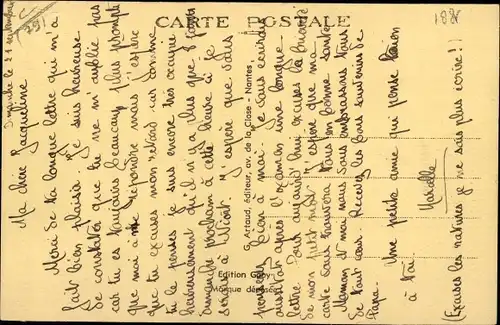 CARTE POSTALE
Dimanche le 22 septembre
Ma chère Jacqueline
Merci de ta longue lettre qui m'a
fait bien plaisir. Je suis heureuse
de constater que tu ne m'oublie pas
car tu es toujours beaucoup plus prompte
que moi à me répondre mais j'espère
que tu excuses mon retard car comme
tu le penses je suis encore très occupée
heureusement qu'il n'y a plus que 8 jours
dimanche prochain à cette heure-ci je
serai à Niort. J'espère que tu
penseras bien à moi. Je vous écrirai
aussitôt après l'examen une longue
lettre. Pour aujourd'hui excuses la brièveté
de mon petit mot. J'espère que ma
carte vous trouvera tous en bonne santé
Maman et moi nous vous embrassons tous
de tout cœur. Recevez les bons souvenirs de
Papa.
Une petite amie qui pense bien
à toi
Marcelle
(Excuses les ratures je ne sais plus écrire!!)
G. Artaud, éditeur, av. de la Close - Nantes
Edition Gaby
Marque déposée